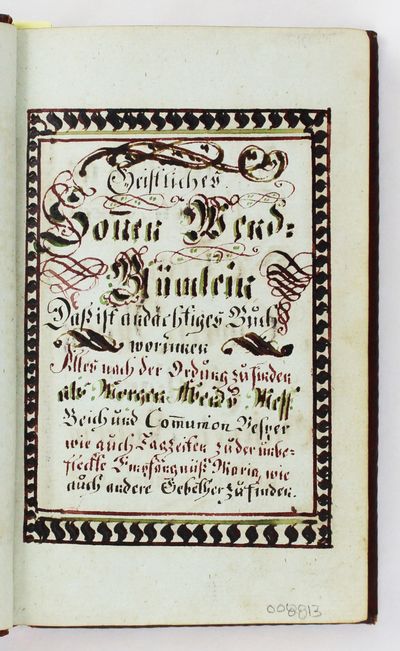 Geistliches
Soñen Wend=
Blümlein
Daß ist andächtiges Buch
worinnen
Alles nach der Ordung zu finden
als Morgen Abend Meß
Beich und Communion Vesper
wie auch Tagzeiten zu der unbe=
fleckte Empfängnüß Maria, wie
auch andere Gebether zu finden.
008813